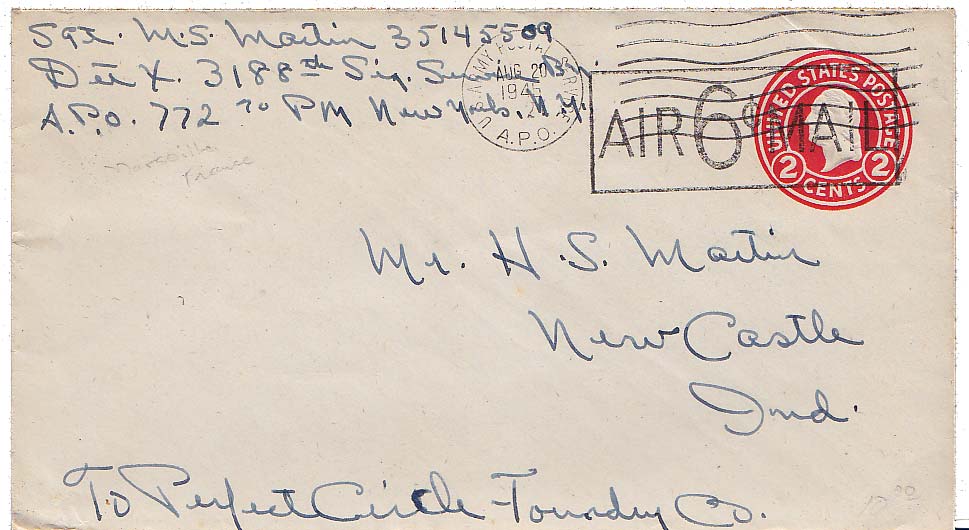 Sgt. M.S. Martin 35145509
Det X. 3188th Sig. Service Bn.
A.P.O. 772 % PM New York, N.Y.
U.S. ARMY POSTAL SERVICE
AUG 20
1945
A.P.O.
AIR 6¢ MAIL
UNITED STATES POSTAGE
2 CENTS 2
Marseille
France
Mr. H.S. Martin
New Castle
Ind.
To Perfect Circle Foundry Co.
12.00